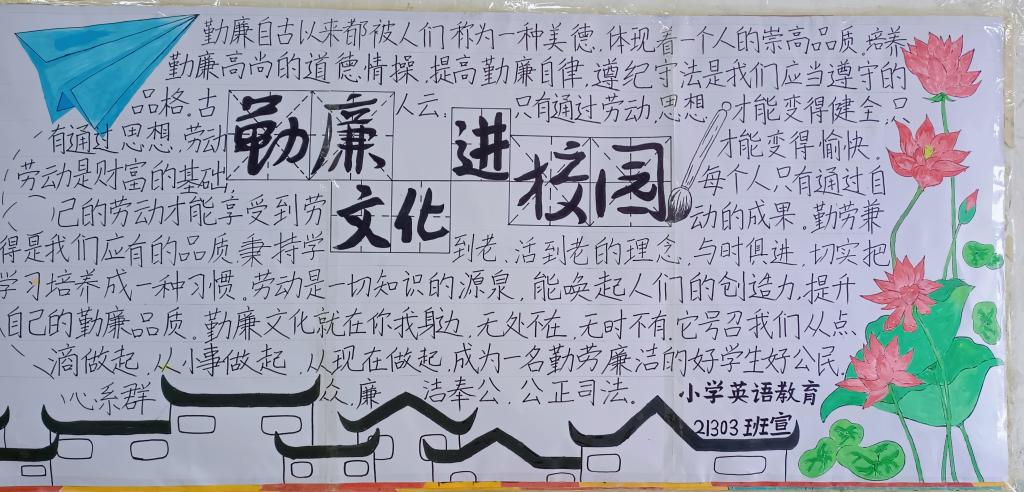 勤廉自古以来都被人们称为一种美德,体现着一个人的崇高品质,培养
勤廉高尚的道德情操,提高勤廉自律,遵纪守法是我们应当遵守的
品格。古人云:只有通过劳动,思想才能变得健全,只
有通过思想,劳动才能变得愉快。
劳动是财富的基础,每个人只有通过自
己的劳动才能享受到劳动的成果。勤劳兼
得是我们应有的品质秉持学到老、活到老的理念,与时俱进,切实把
学习培养成一种习惯。劳动是一切知识的源泉,能唤起人们的创造力,提升
自己的勤廉品质。勤廉文化就在你我身边,无处不在,无时不有,它号召我们从点
滴做起,从小事做起,从现在做起,成为一名勤劳廉洁的好学生好公民,
心系群众,廉洁奉公,公正司法。
勤廉
文化
进
校园
小学英语教育
21303班宣